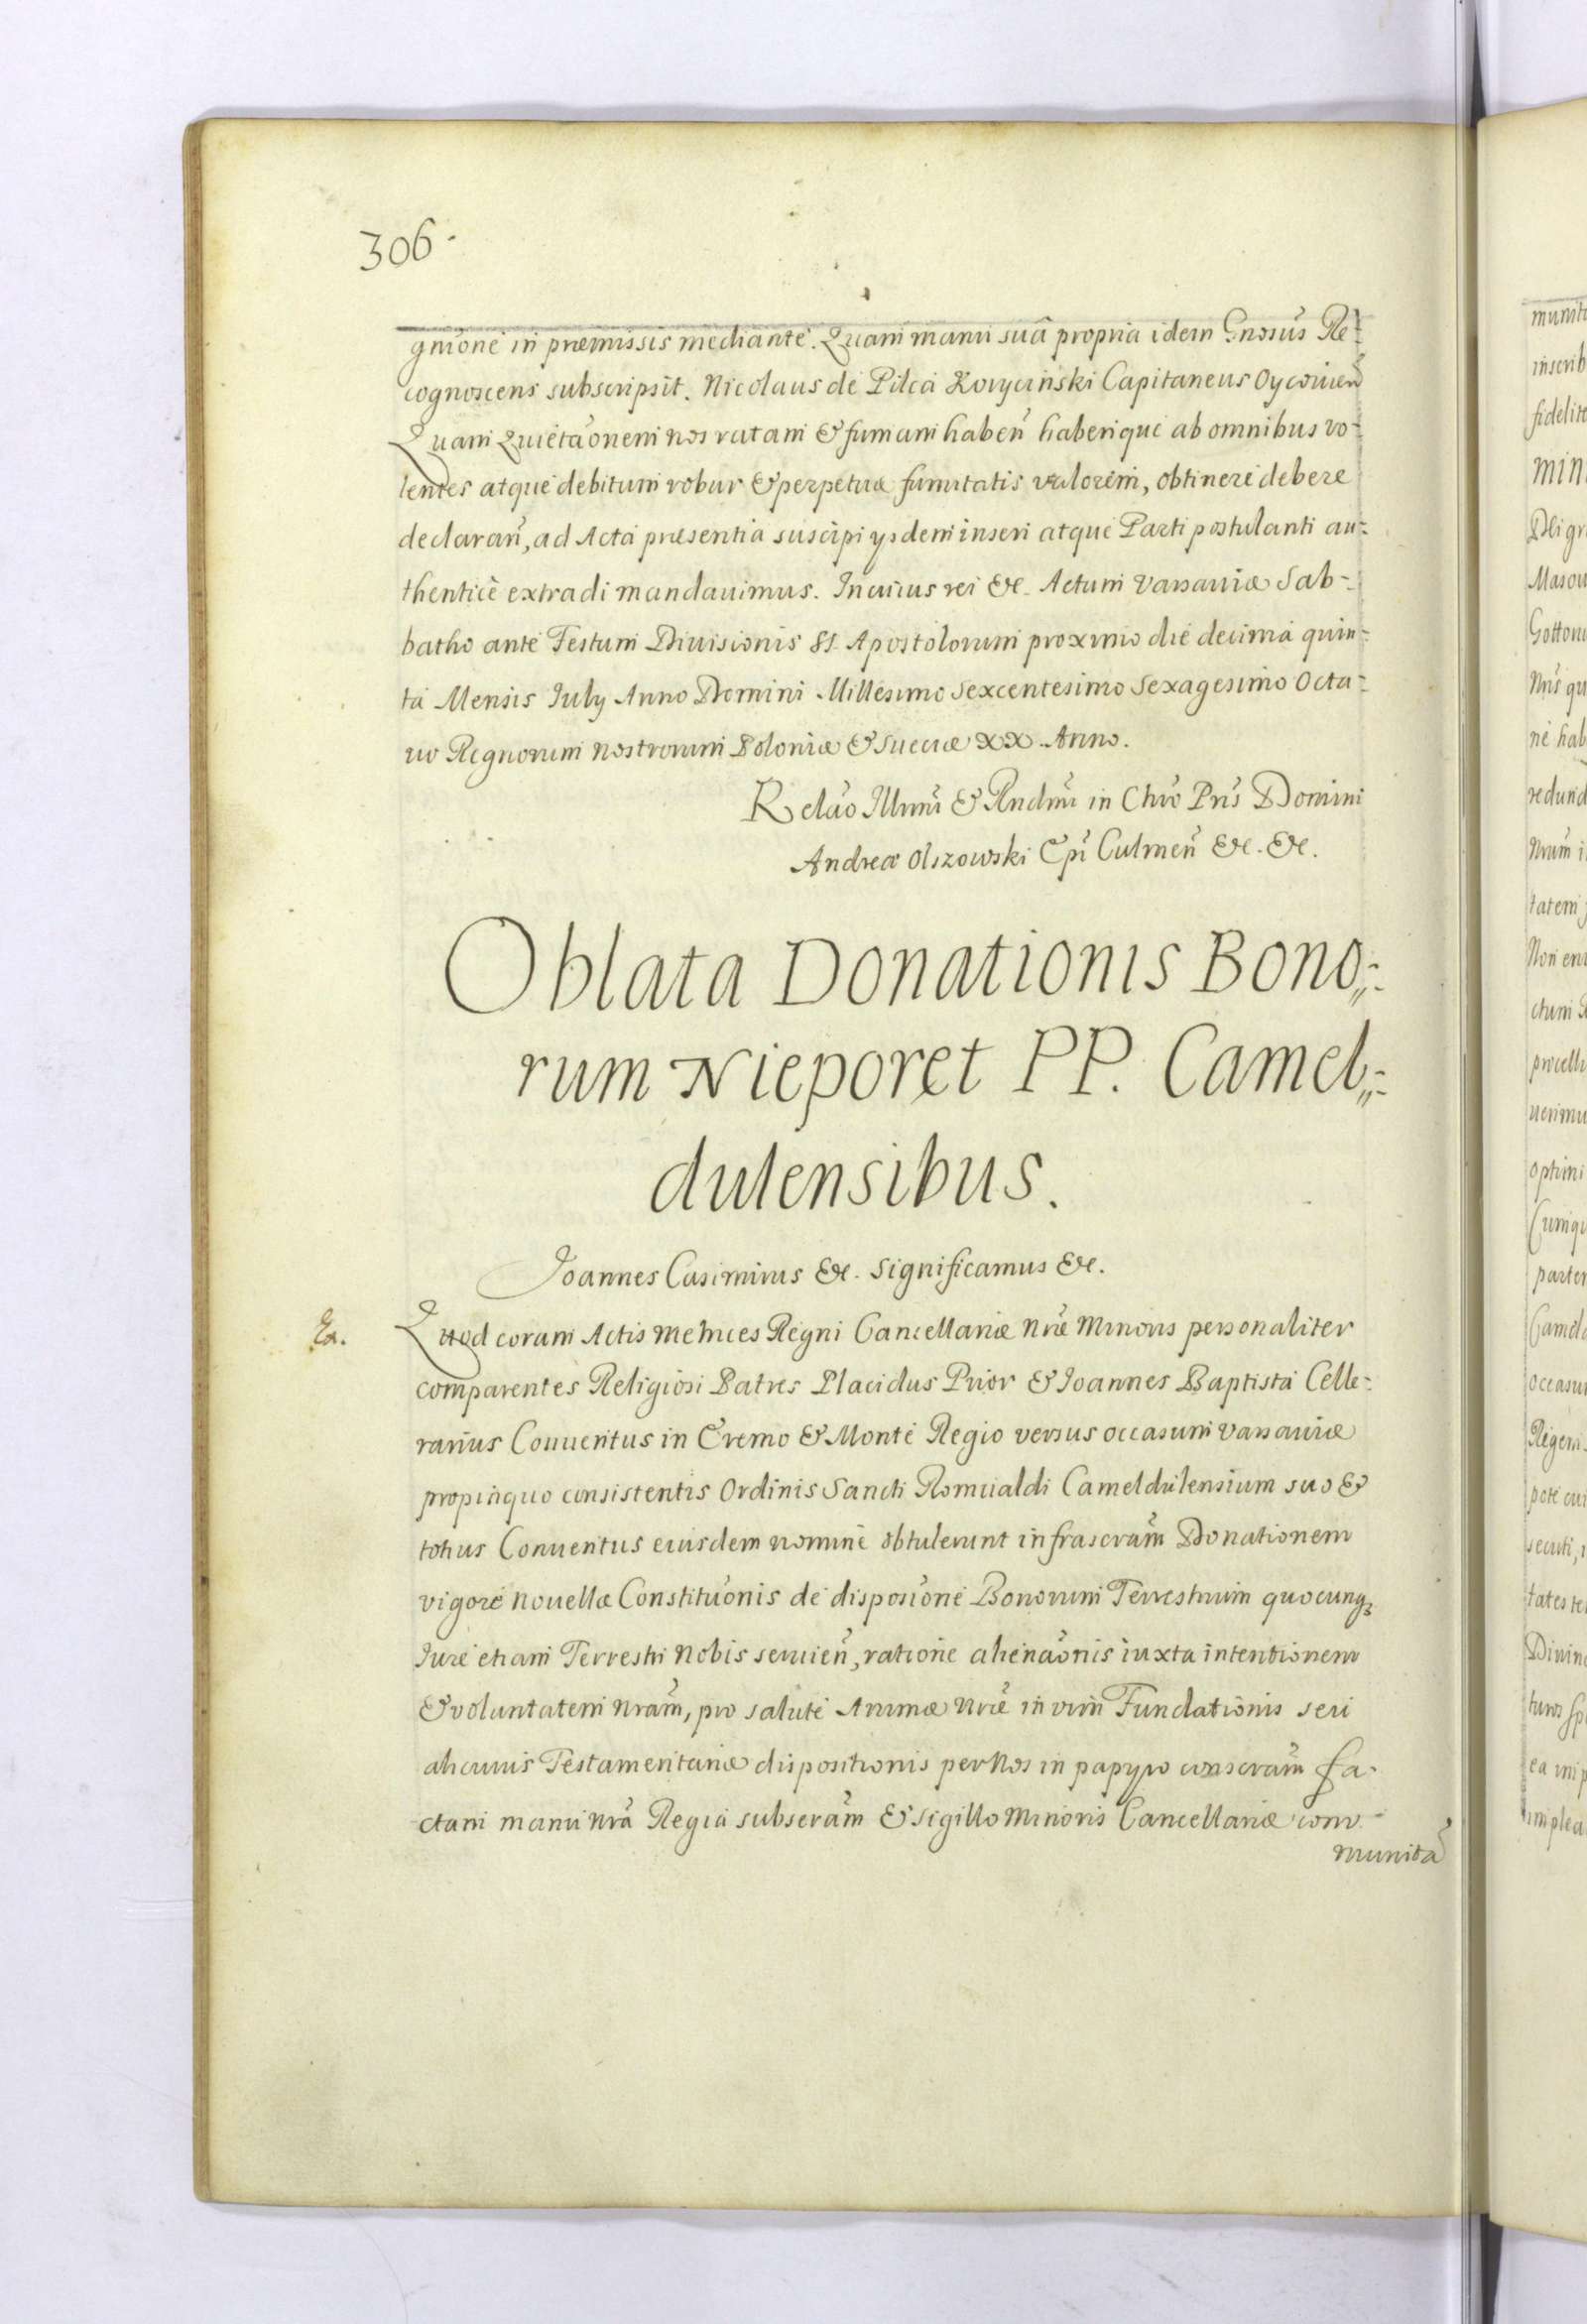 306.
gnione in præmissis mediante. Quam manu suâ propria idem Gnosus Re-
cognoscens subscripsit. Nicolaus de Pilca Korycinski Capitaneus Oycouien
Quam Quietaonem nos ratam & firmam haben haberique ab omnibus vo-
lentes atque debitum robur & perpetuæ firmitatis valorem, obtinere debere
declaran, ad Acta præsentia suscipi ysdem inseri atque Parti postulanti au-
thenticè extradi mandauimus. In cuius rei &c. Actum Varsauiæ Sab-
batho ante Festum Diuisionis SS. Apostolorum proximo die decima quin-
ta Mensis July Anno Domini Millesimo Sexcentesimo Sexagesimo Octa-
uo Regnorum nostrorum Poloniæ & Sueciæ XX. Anno.
Relao Illmi & Rndmi in Chro Pris Domini
Andreæ Olszowski Epi Culmen &c. &c.
Oblata Donationis Bono-
rum Nieporet PP. Camel-
dulensibus.
Joannes Casimirus &c. Significamus &c.
Ex.
Quod coram Actis Metrices Regni Cancellariæ Nræ Minoris personaliter
comparentes Religiosi Patres Placidus Prior & Ioannes Baptista Celle-
rarius Conuentus in Eremo & Monte Regio versus occasum Varsauiæ
propinquo consistentis Ordinis Sancti Romualdi Cameldulensium suo &
totius Conuentus eiusdem nomine obtulerunt infrascram Donationem
vigore nouellæ Constituonis de disposione Bonorum Terrestrium quocunqz
Iure etiam Terrestri Nobis seruien, ratione alienaonis iuxta intentionem
& voluntatem nram, pro salute Animæ nræ in vim Fundationis seu
alicuius Testamentariæ dispositionis per Nos in papyro conscram fa-
ctam manu nra Regia subscram & sigillo Minoris Cancellariæ com-
munita